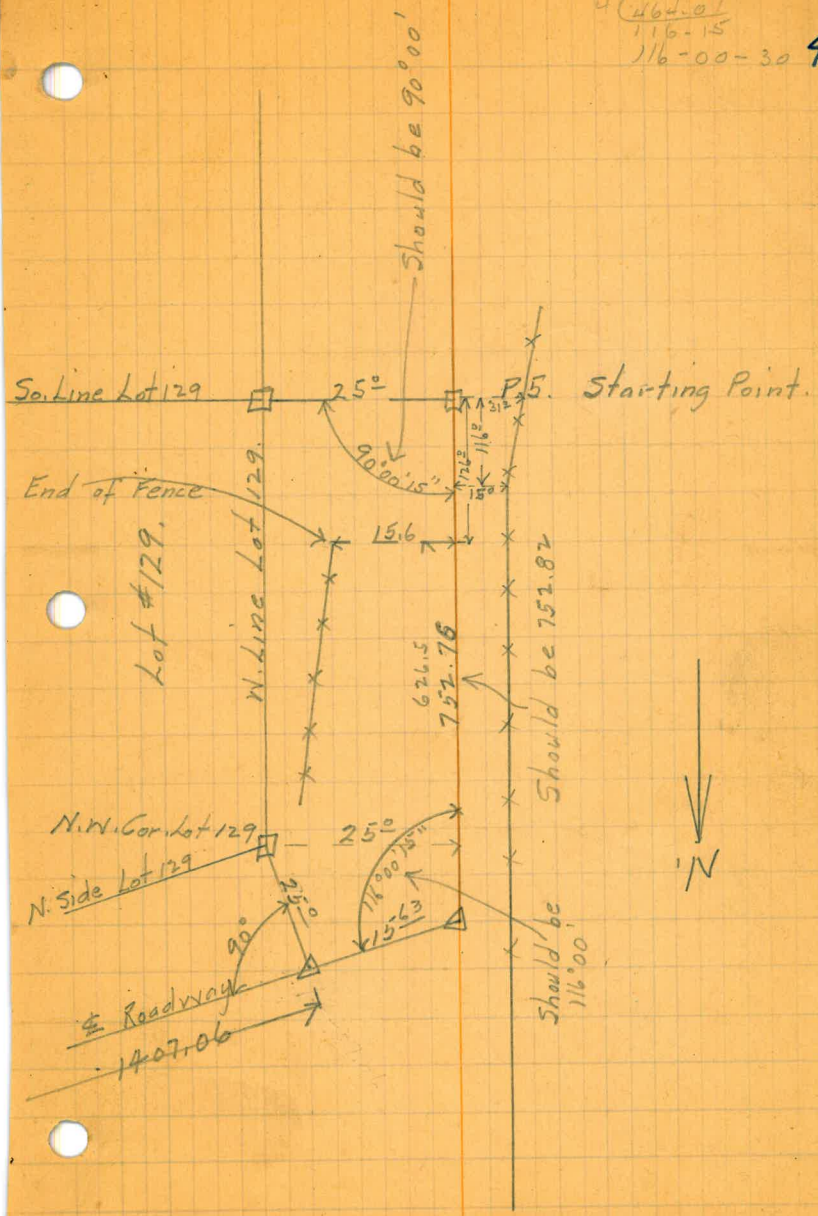 4
464.01
116-15
116-00-30
Should be 90°00'
So. Line Lot 129
25°
P.S. Starting Point.
31²
90°00'15"
126²
116²
15°
End of Fence
W. Line Lot 129.
15.6
Lot #129.
626.5
752.76
Should be 752.82
N.W. Cor. Lot 129
25°
N. Side Lot 129
25°
116°00'15"
N.
90°
15⁶³
Should be
116°00'
℄ Roadway
1407.06